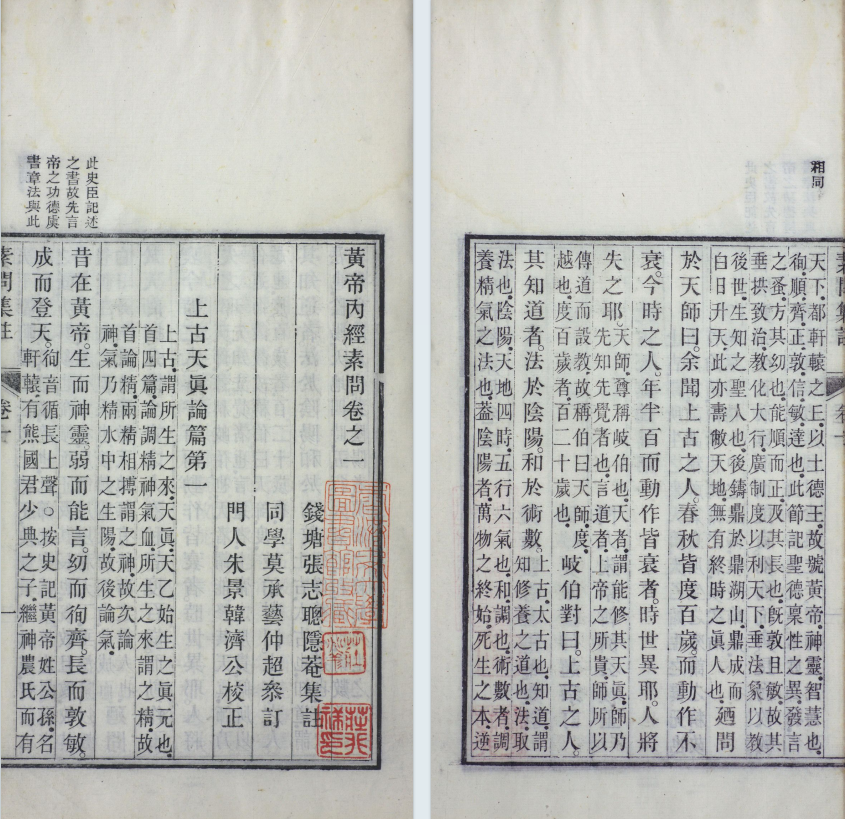 此史臣記述
之書故先言
帝之功德虞
書章法與此
黃帝內經素問卷之一
錢塘張志聰隱菴集註
同學莫承藝仲超叅訂
門人朱景韓濟公校正
上古天眞論篇第一
上古。謂所生之來。天眞。天乙始生之眞元也。
首四篇。論調精神氣血。所生之來。謂之精。故
首論精。兩精相搏。謂之神。故次論
神。氣乃精水中之生陽。故後論氣。
昔在黃帝。生而神靈。弱而能言。幼而徇齊。長而敦敏。
成而登天。徇音循。長上聲。○按史記黃帝姓公孫。名
軒轅。有熊國君少典之子。繼神農氏而有
素問集註
卷一
一
相同
天下。都軒轅之王。以土德王。故號黃帝。神靈。智慧也。
徇。順。齊。正。敦。信。敏。達也。此節記聖德稟性之異。發言
之蚤。方其幼也。能順而正。及其長也。旣敦且敏。故其
垂拱致治。教化大行。廣制度以利天下。垂法象以教
後世。生知之聖人也。後鑄鼎於鼎湖山。鼎成而
白日升天。此亦壽敝天地。無有終時之眞人也。廼問
於天師曰。余聞上古之人。春秋皆度百歲。而動作不
衰。今時之人。年半百而動作皆衰者。時世異耶。人將
失之耶。天師。尊稱岐伯也。天者。謂能修其天眞。師乃
先知先覺者也。言道者。上帝之所貴。師所以
傳道而設教。故稱伯曰天師。度。
越也。度百歲者。百二十歲也。岐伯對曰。上古之人。
其知道者。法於陰陽。和於術數。上古。太古也。知道。謂
知修養之道也。法。取
法也。陰陽。天地四時。五行六氣也。和。調也。術數者。調
養精氣之法也。葢陰陽者。萬物之終始。死生之本。逆